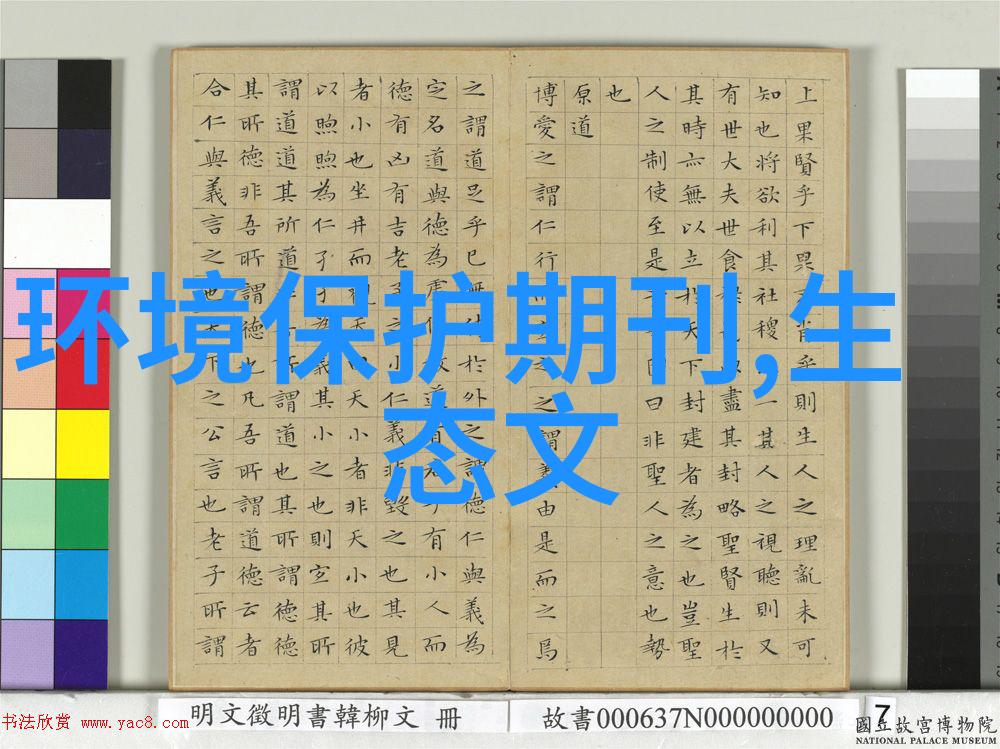 环境保护期刊,生
态文
上果賢乎下果不肖乎則生人之理亂未可
知也將欲利其社稷一其人之視聽則又
有世大夫世食祿邑以盡其封略聖賢生於
其時亦無以立於天下封建者為之也豈聖
人之制使至是乎吾固曰非聖人之意也勢
也
原道
博愛之謂仁行而宜之之謂義由是而之焉
之謂道足乎己無待於外之謂德仁與義為
定名道與德為虛位故道有君子有小人而
德有凶有吉老子之小仁義非毀之也其見
者小也坐井而觀天曰天小者非天小也彼
以煦煦為仁孑孑為義其小之也則宜其所
謂道道其所道非吾所謂道也其所謂德德
其所德非吾所謂德也凡吾所謂道德云者
合仁與義言之也天下之公言也老子所謂
书法欣赏 www.yac8.com
明文徵明書韓柳文 冊
故書000637N000000000
7
國立故宮博物院
NATIONAL PALACE MUSEUM